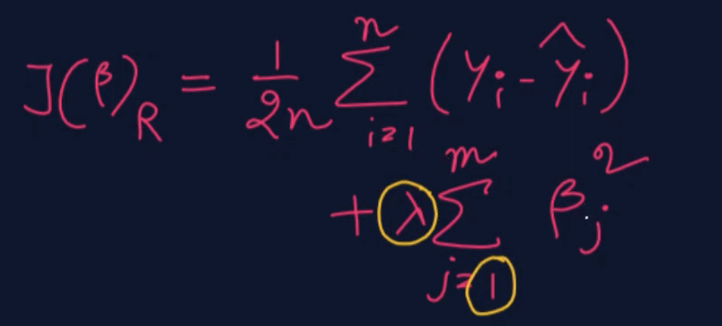 J(β)_R = \frac{1}{2n} \sum_{i=1}^{n} (y_i - \hat{y}_i)
+ λ \sum_{j=1}^{m} β_j^2